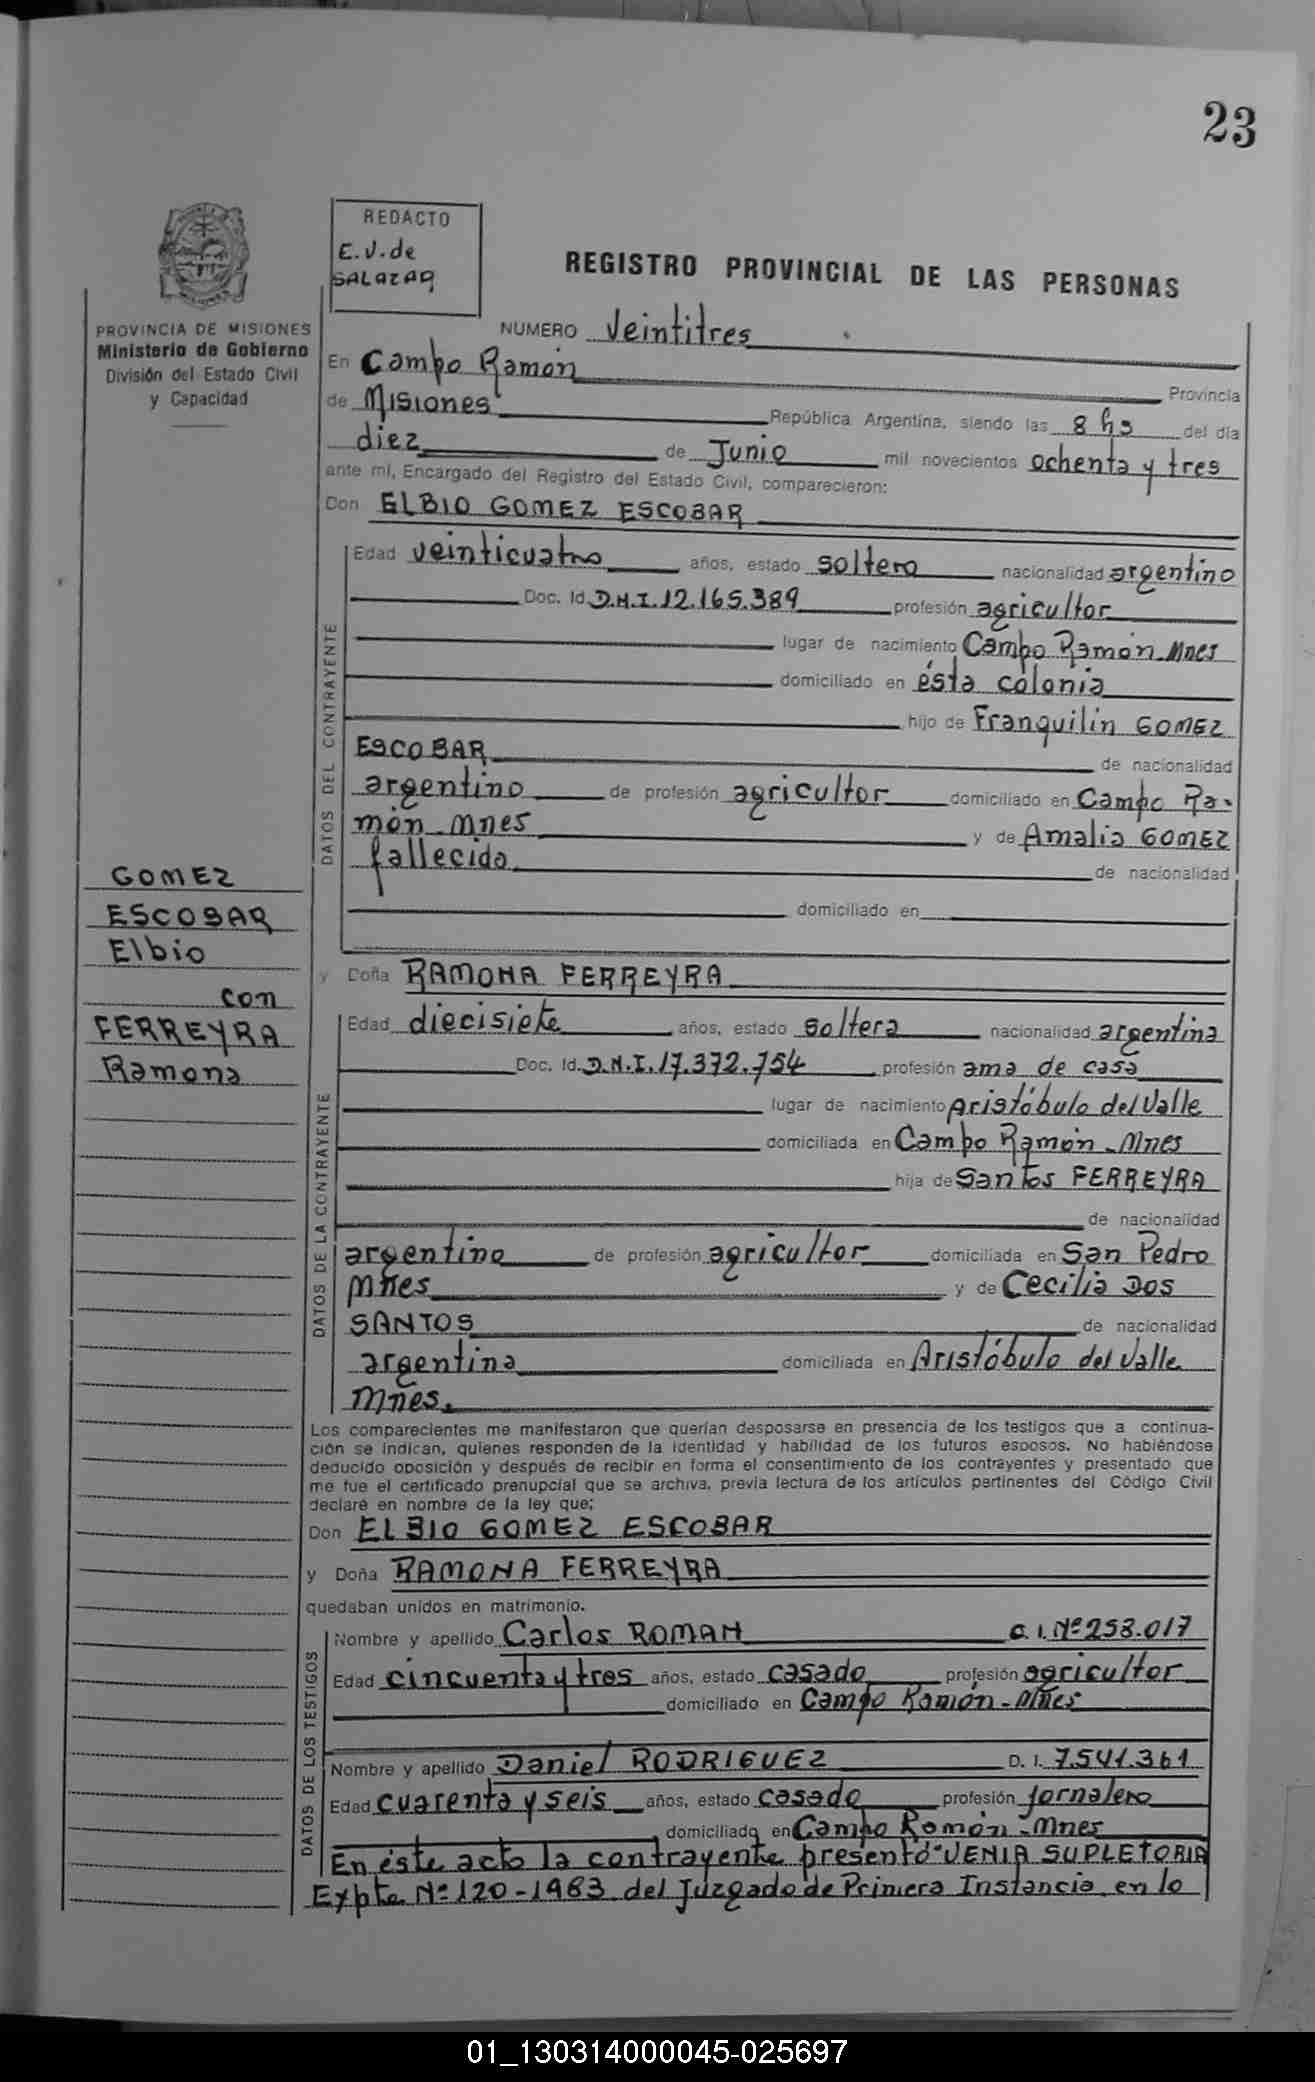 23
REDACTO
E.V. de
SALAZAR
REGISTRO PROVINCIAL DE LAS PERSONAS
PROVINCIA DE MISIONES
Ministerio de Gobierno
División del Estado Civil
y Capacidad
NUMERO Veintitres
En Campo Ramón Provincia
de Misiones República Argentina, siendo las 8 hs del día
diez de Junio mil novecientos ochenta y tres
ante mí, Encargado del Registro del Estado Civil, comparecieron:
Don ELBIO GOMEZ ESCOBAR
DATOS DEL CONTRAYENTE
Edad veinticuatro años, estado soltero nacionalidad argentino
Doc. Id D.N.I. 12.165.389 profesión agricultor
lugar de nacimiento Campo Ramón-Mnes
domiciliado en ésta colonia
hijo de Franquilin GOMEZ
ESCOBAR de nacionalidad
argentino de profesión agricultor domiciliado en Campo Ra-
món-Mnes y de Amalia GOMEZ
fallecida de nacionalidad
domiciliado en
GOMEZ
ESCOBAR
Elbio
con
FERREYRA
Ramona
y Doña RAMONA FERREYRA
DATOS DE LA CONTRAYENTE
Edad diecisiete años, estado soltera nacionalidad argentina
Doc. Id. D.N.I. 17.372.754 profesión ama de casa
lugar de nacimiento Aristóbulo del Valle
domiciliada en Campo Ramón-Mnes
hija de Santos FERREYRA
de nacionalidad
argentino de profesión agricultor domiciliada en San Pedro
Mnes y de Cecilia DOS
SANTOS de nacionalidad
argentina domiciliada en Aristóbulo del Valle
Mnes.
Los comparecientes me manifestaron que querían desposarse en presencia de los testigos que a continua-
ción se indican, quienes responden de la identidad y habilidad de los futuros esposos. No habiéndose
deducido oposición y después de recibir en forma el consentimiento de los contrayentes y presentado que
me fue el certificado prenupcial que se archiva, previa lectura de los artículos pertinentes del Código Civil
declaré en nombre de la ley que;
Don ELBIO GOMEZ ESCOBAR
y Doña RAMONA FERREYRA
quedaban unidos en matrimonio.
DATOS DE LOS TESTIGOS
Nombre y apellido Carlos ROMAN C.I. Nº 253.017
Edad cincuenta y tres años, estado casado profesión agricultor
domiciliado en Campo Ramón-Mnes
Nombre y apellido Daniel RODRIGUEZ D.I. 7.541.361
Edad cuarenta y seis años, estado casado profesión jornalero
domiciliado en Campo Ramón-Mnes
En éste acto la contrayente presentó "VENIA SUPLETORIA
Expte Nº 120-1983 del Juzgado de Primera Instancia en lo
01_130314000045-025697